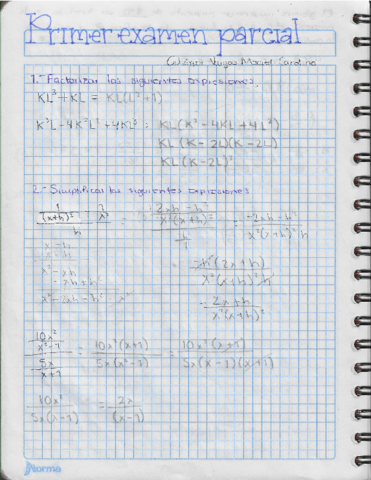 Primer examen parcial
1.- Factorizar las siguientes expresiones
KL³+KL = KL(L²+1)
K³L-4K²L²+4KL³ = KL(K²-4KL+4L²)
KL(K-2L)(K-2L)
KL(K-2L)²
2.- Simplificar las siguientes expresiones
1/(x+h)² - 1/x² / h = -2xh-h² / x²(x+h)² / h/1 = -2xh-h² / x²(x+h)² h
-h(2x+h) / x²(x+h)² h
-2x+h / x²(x+h)²
10x²/x²-1 / 5x/x+1 = 10x²(x+1) / 5x(x²-1) = 10x²(x+1) / 5x(x-1)(x+1)
10x² / 5x(x-1) = 2x / (x-1)
Norma